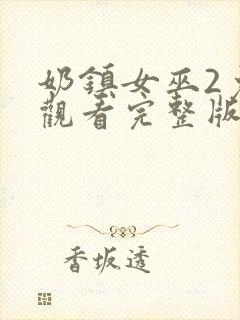 奶鎮女巫2
觀看完整版
香坂透